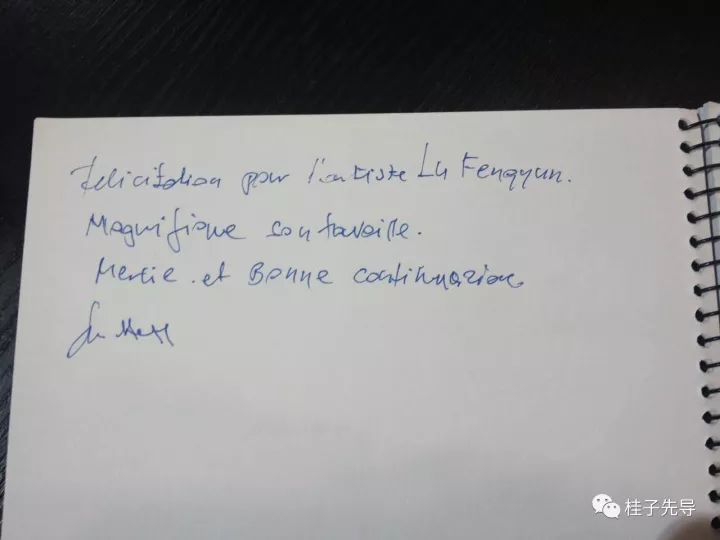 Felicitation pour l'artiste Lu Fengyun.
Magnifique son travaille.
Mercie. et Bonne continuazion
桂子先导